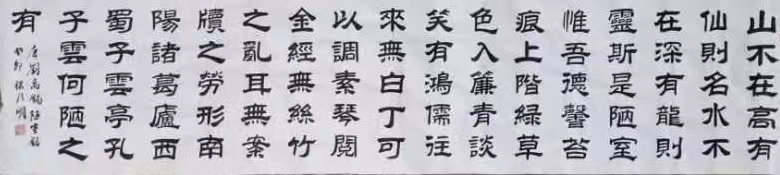 山不在高有
仙則名水不
在深有龍則
靈斯是陋室
惟吾德馨苔
痕上階緑草
色入簾青談
笑有鴻儒往
來無白丁可
以調素琴閱
金經無絲竹
之亂耳無案
牘之勞形南
陽諸葛廬西
蜀子雲亭孔
子雲何陋之
有
唐劉禹錫陋室銘
癸卯